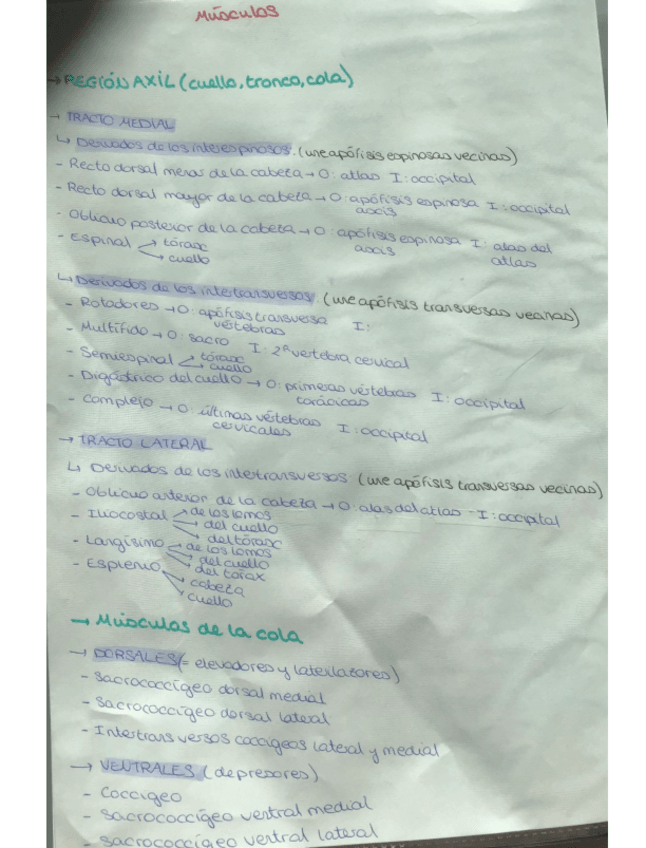 Músculos
→ REGIÓN AXIL (cuello, tronco, cola)
→ TRACTO MEDIAL
↳ Derivados de los interespinosos. (une apófisis espinosas vecinas)
- Recto dorsal menor de la cabeza → O: atlas I: occipital
- Recto dorsal mayor de la cabeza → O: apófisis espinosa axis I: occipital
- Oblicuo posterior de la cabeza → O: apófisis espinosa axis I: alas del atlas
- Espinal → tórax
→ cuello
↳ Derivados de los intertransversos. (une apófisis transversas vecinas)
- Rotadores → O: apófisis transversa vértebras I:
- Multífido → O: sacro I: 2ª vertebra cervical
- Semiespinal → tórax
→ cuello
- Digástrico del cuello → O: primeras vértebras torácicas I: occipital
- Complejo → O: últimas vértebras cervicales I: occipital
→ TRACTO LATERAL
↳ Derivados de los intertransversos (une apófisis transversas vecinas)
- Oblicuo anterior de la cabeza → O: alas del atlas - I: occipital
- Iliocostal → de los lomos
→ del cuello
→ del tórax
- Longísimo → de los lomos
→ del cuello
→ del tórax
- Esplenio → cabeza
→ cuello
→ Músculos de la cola
→ DORSALES (= elevadores y laterilatores)
- Sacrococcígeo dorsal medial
- Sacrococcígeo dorsal lateral
- Intertransversos coccígeos lateral y medial
→ VENTRALES (depresores)
- Coccígeo
- Sacrococcígeo ventral medial
- Sacrococcígeo ventral lateral